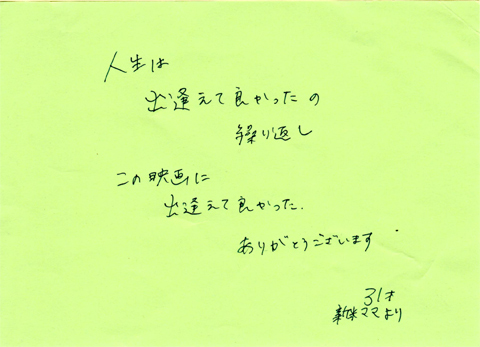 人生は
出逢えて良かったの
繰り返し
この映画に
出逢えて良かった.
ありがとうございます
31才
新米ママより